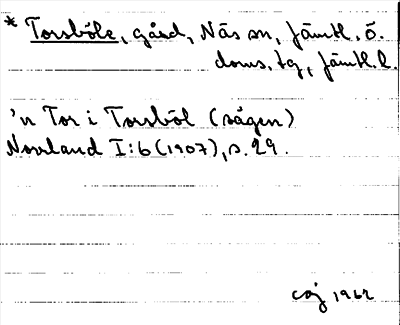 * Torsböle, gård, Näs sn, Jämtl. ö.
doms. tg, Jämtl. l.
'n Tor i Torsböl (sägen)
Norrland I:6 (1907), s. 29.
1962